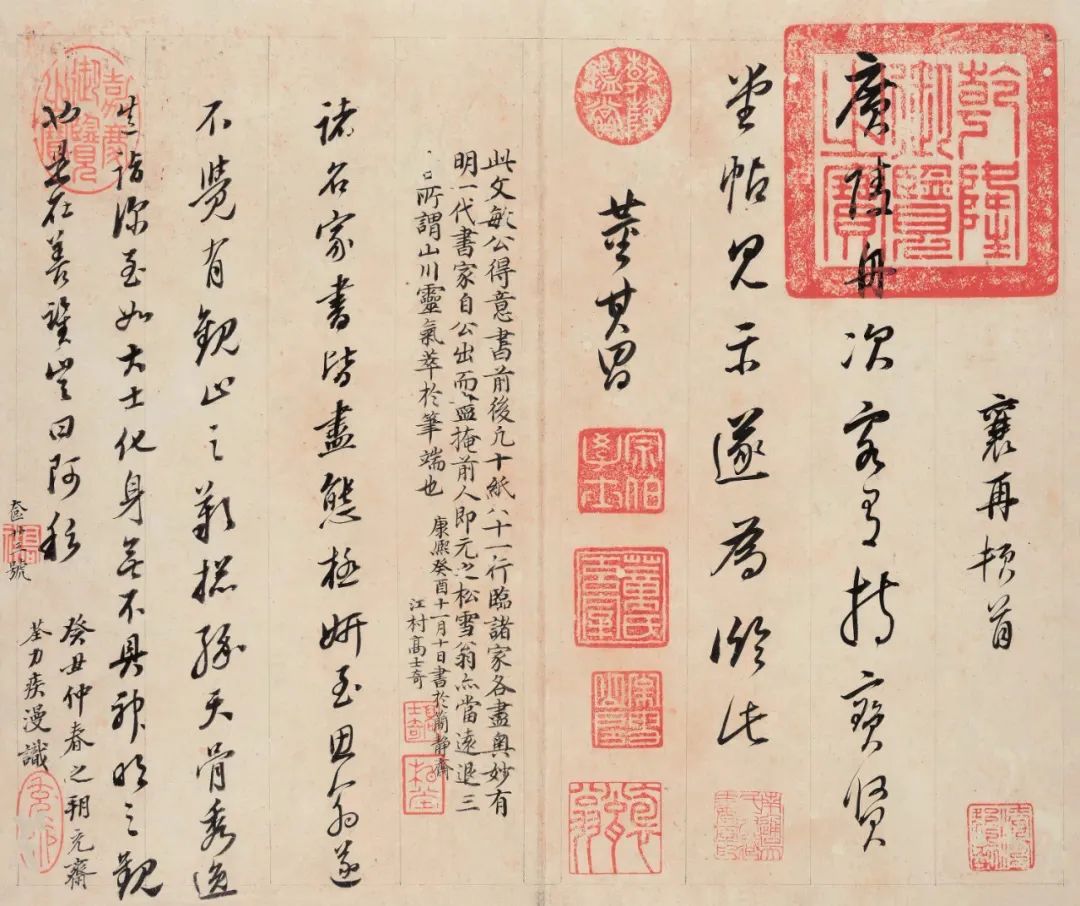 襄再頓首
乾隆御覽之寶
廣陵舟次客有持寶賢
堂帖見示遂為臨此
乾隆鑑賞
董其昌
宗伯學士
此文敏公得意書前後凡十紙八十一行臨諸家各盡奧妙有
明一代書家自公出而盡掩前人即元之松雪翁亦當遠退三
所謂山川靈氣萃於筆端也 康熙癸酉十一月十日書於簡静齋
江村高士奇
士奇
諸名家書皆盡態極妍至思翁遂
不覺有觀止之歎摠緣天骨秀逸
造詣深至如大士化身無不具神明之觀
嘉慶御覽之寶
是在善鑒豈曰阿私
癸丑仲春之朔充齋
荃力疾漫識
廿三號